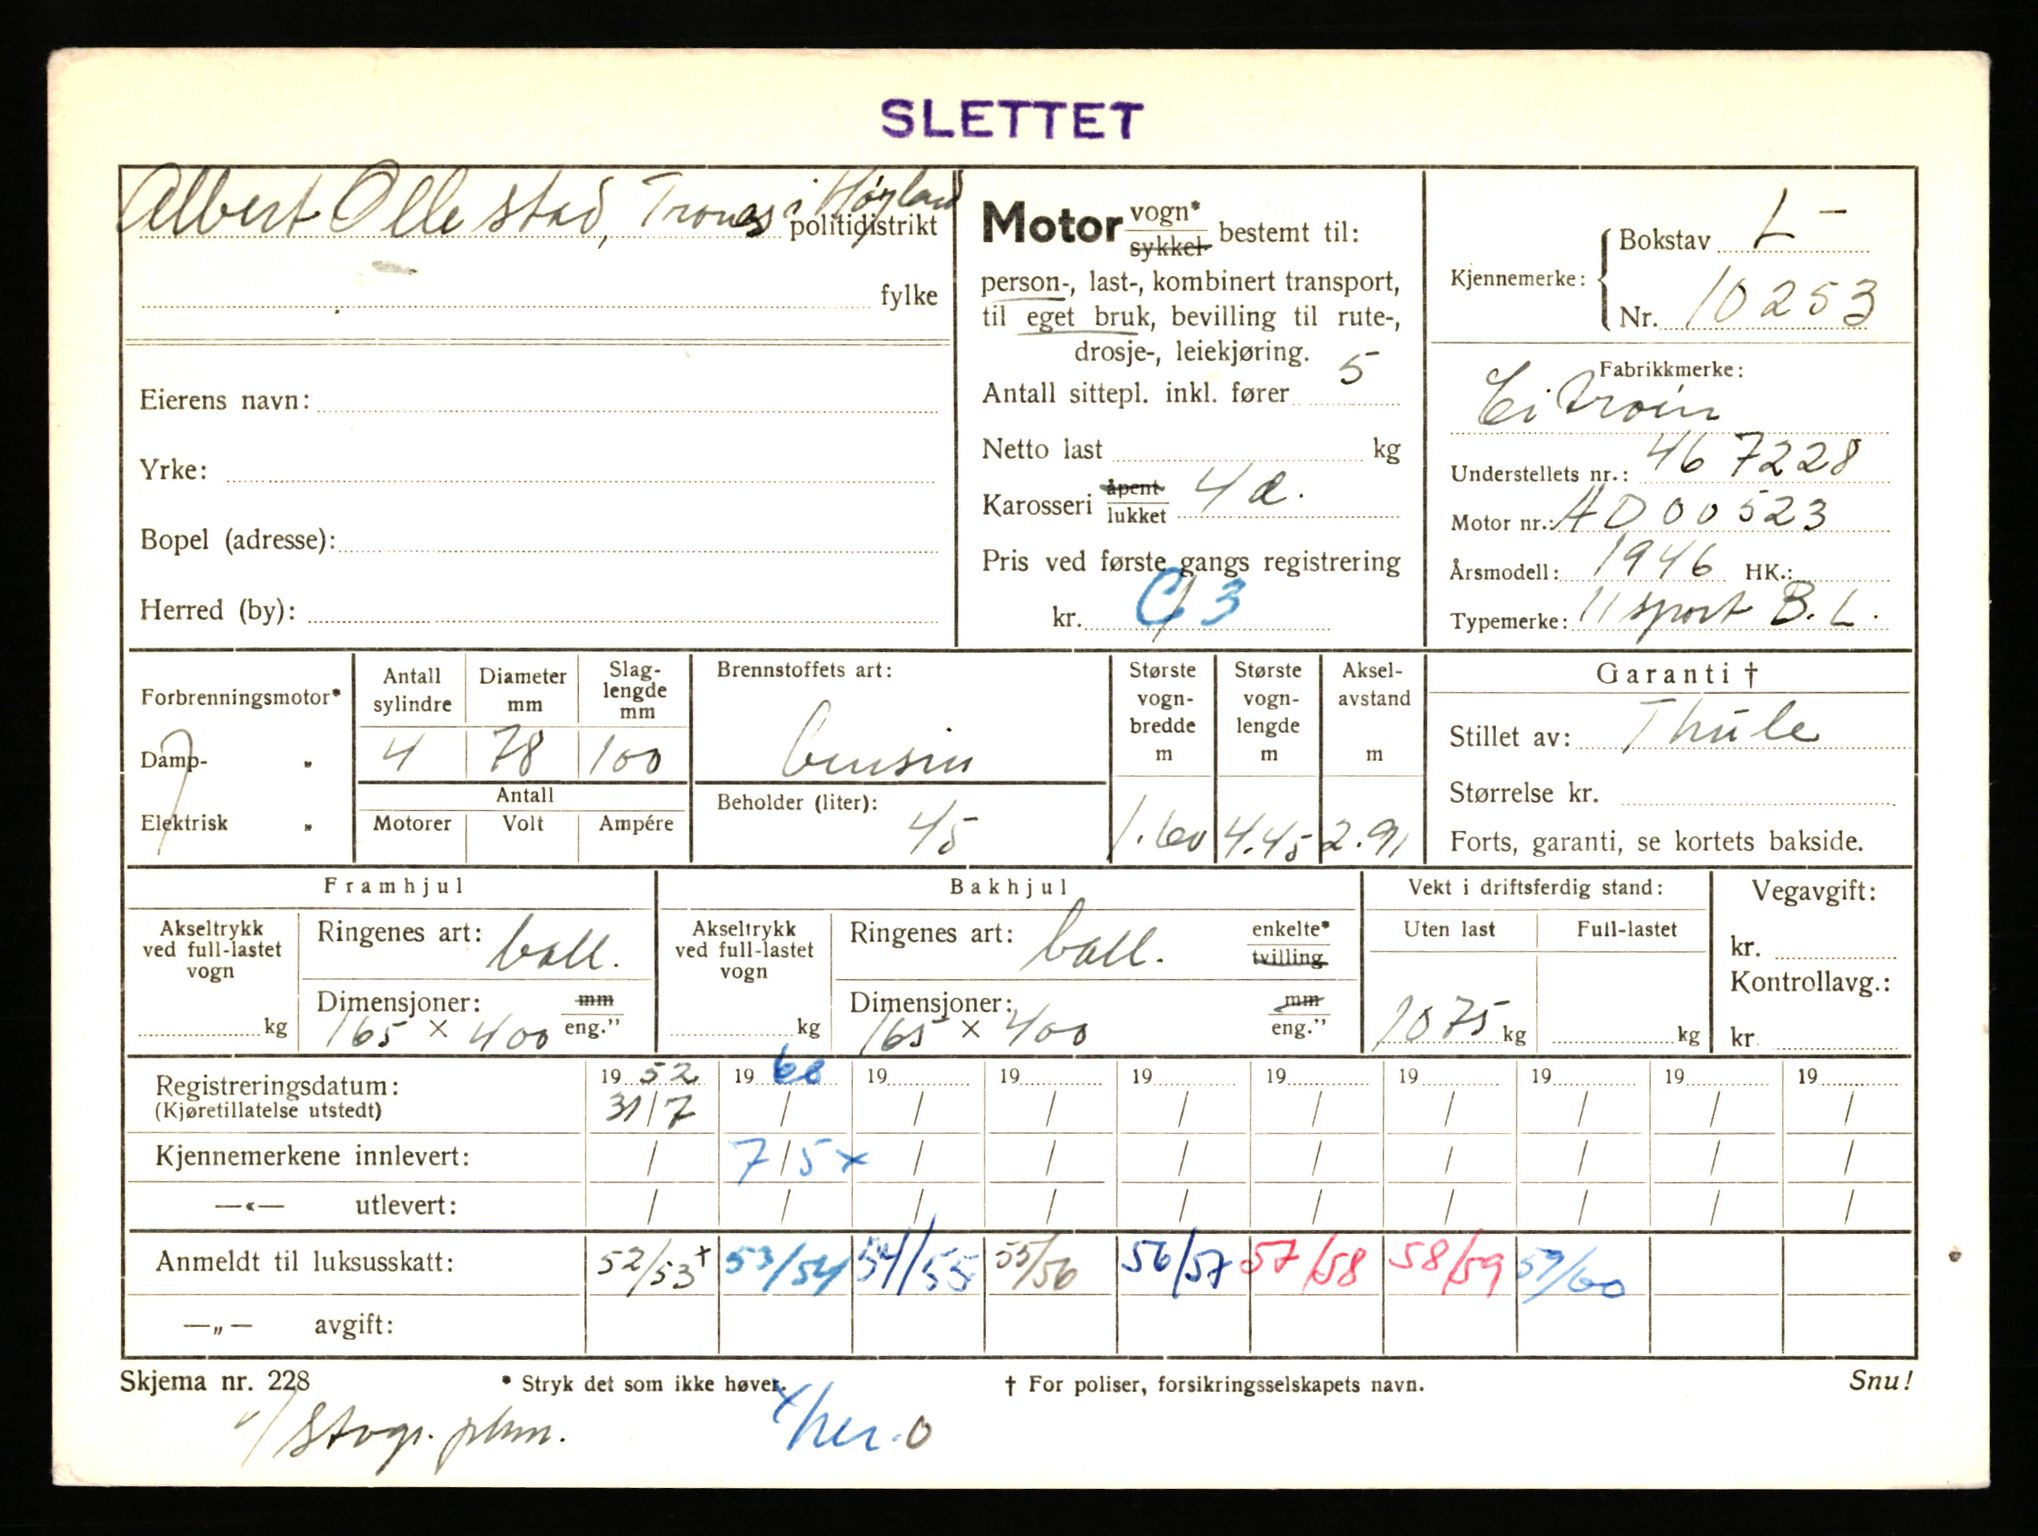 SLETTET
Albert Ollestad, Trones i Høyland
politidistrikt
fylke
Eierens navn:
Yrke:
Bopel (adresse):
Herred (by):
Motor vogn* sykkel bestemt til:
person-, last-, kombinert transport,
til eget bruk, bevilling til rute-,
drosje-, leiekjøring.
Antall sittepl. inkl. fører 5
Netto last kg
Karosseri åpent lukket 4 d.
Pris ved første gangs registrering
kr. C/3
Kjennemerke: Bokstav L-
Nr. 10253
Fabrikkmerke:
Citroin
Understellets nr.: 467228
Motor nr.: AD00523
Årsmodell: 1946 HK.:
Typemerke: 11 sport B.L.
Forbrenningsmotor*
Damp- "
Elektrisk "
Antall sylindre 4
Diameter mm 78
Slag-lengde mm 100
Antall
Motorer Volt Ampére
Brennstoffets art:
bensin
Beholder (liter):
45
Største vogn-bredde m 1.60
Største vogn-lengde m 4.45
Aksel-avstand m 2.91
Garanti †
Stillet av: Thule
Størrelse kr.
Forts, garanti, se kortets bakside.
Framhjul
Akseltrykk ved full-lastet vogn kg
Ringenes art: ball.
Dimensjoner: mm
165 x 400 eng."
Bakhjul
Akseltrykk ved full-lastet vogn kg
Ringenes art: ball. enkelte* tvilling
Dimensjoner: mm
165 x 400 eng."
Vekt i driftsferdig stand:
Uten last Full-lastet
1075 kg kg
Vegavgift:
kr.
Kontrollavg.:
kr
Registreringsdatum: 19 52 19 60 19 19 19 19 19 19 19 19
(Kjøretillatelse utstedt) 31/7 / / / / / / / / /
Kjennemerkene innlevert: / 7/5 x / / / / / / / /
—«— utlevert: / / / / / / / / / /
Anmeldt til luksusskatt: 52/53+ 53/54 54/55 55/56 56/57 57/58 58/59 59/60
—„— avgift:
Skjema nr. 228 * Stryk det som ikke høver. † For poliser, forsikringsselskapets navn. Snu!